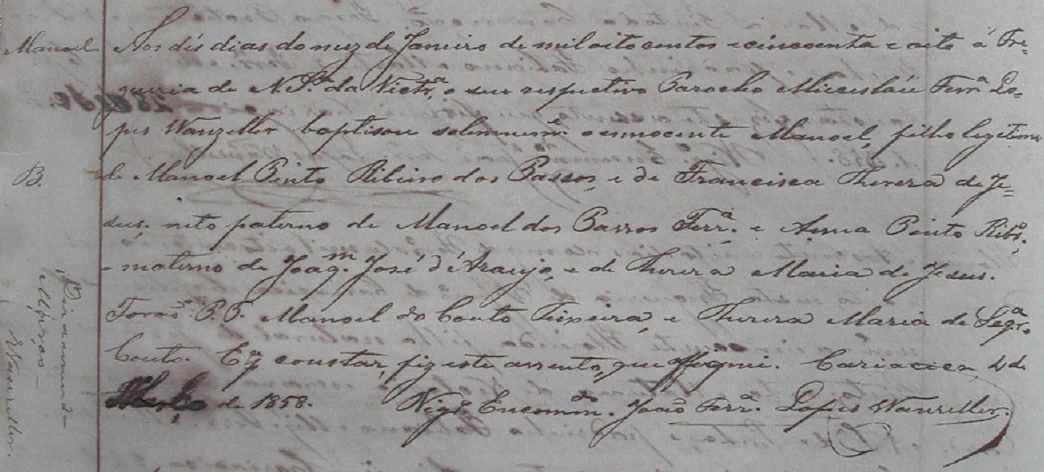 Manoel
Aos dés dias do mez de Janeiro de mil oitocentos e cincoenta e oito á Fre=
guezia de N. Srª da Victrª, o seu respectivo Parocho Ferrª Lo=
pes Wanzeller baptisou solemnemte. o ennocente Manoel, filho legitimo
B.
de Manoel Pinto Ribeiro dos Passos, e de Francisca Thereza de Je=
sus; neto paterno de Manoel dos Passos Ferrª. e Anna Pinto Ribrº,
e materno de Joaqm. José d'Araujo, e de Thereza Maria de Jesus.
Forão P.P. Manoel do Couto Teixeira, e Thereza Maria de
Couto. E pª constar, fiz este assento, que assignei. Cariacica, 4 de
Março de 1858. Vigº. Encommdo. João Ferrª. Lopes Wanzeller.
Wanzeller.